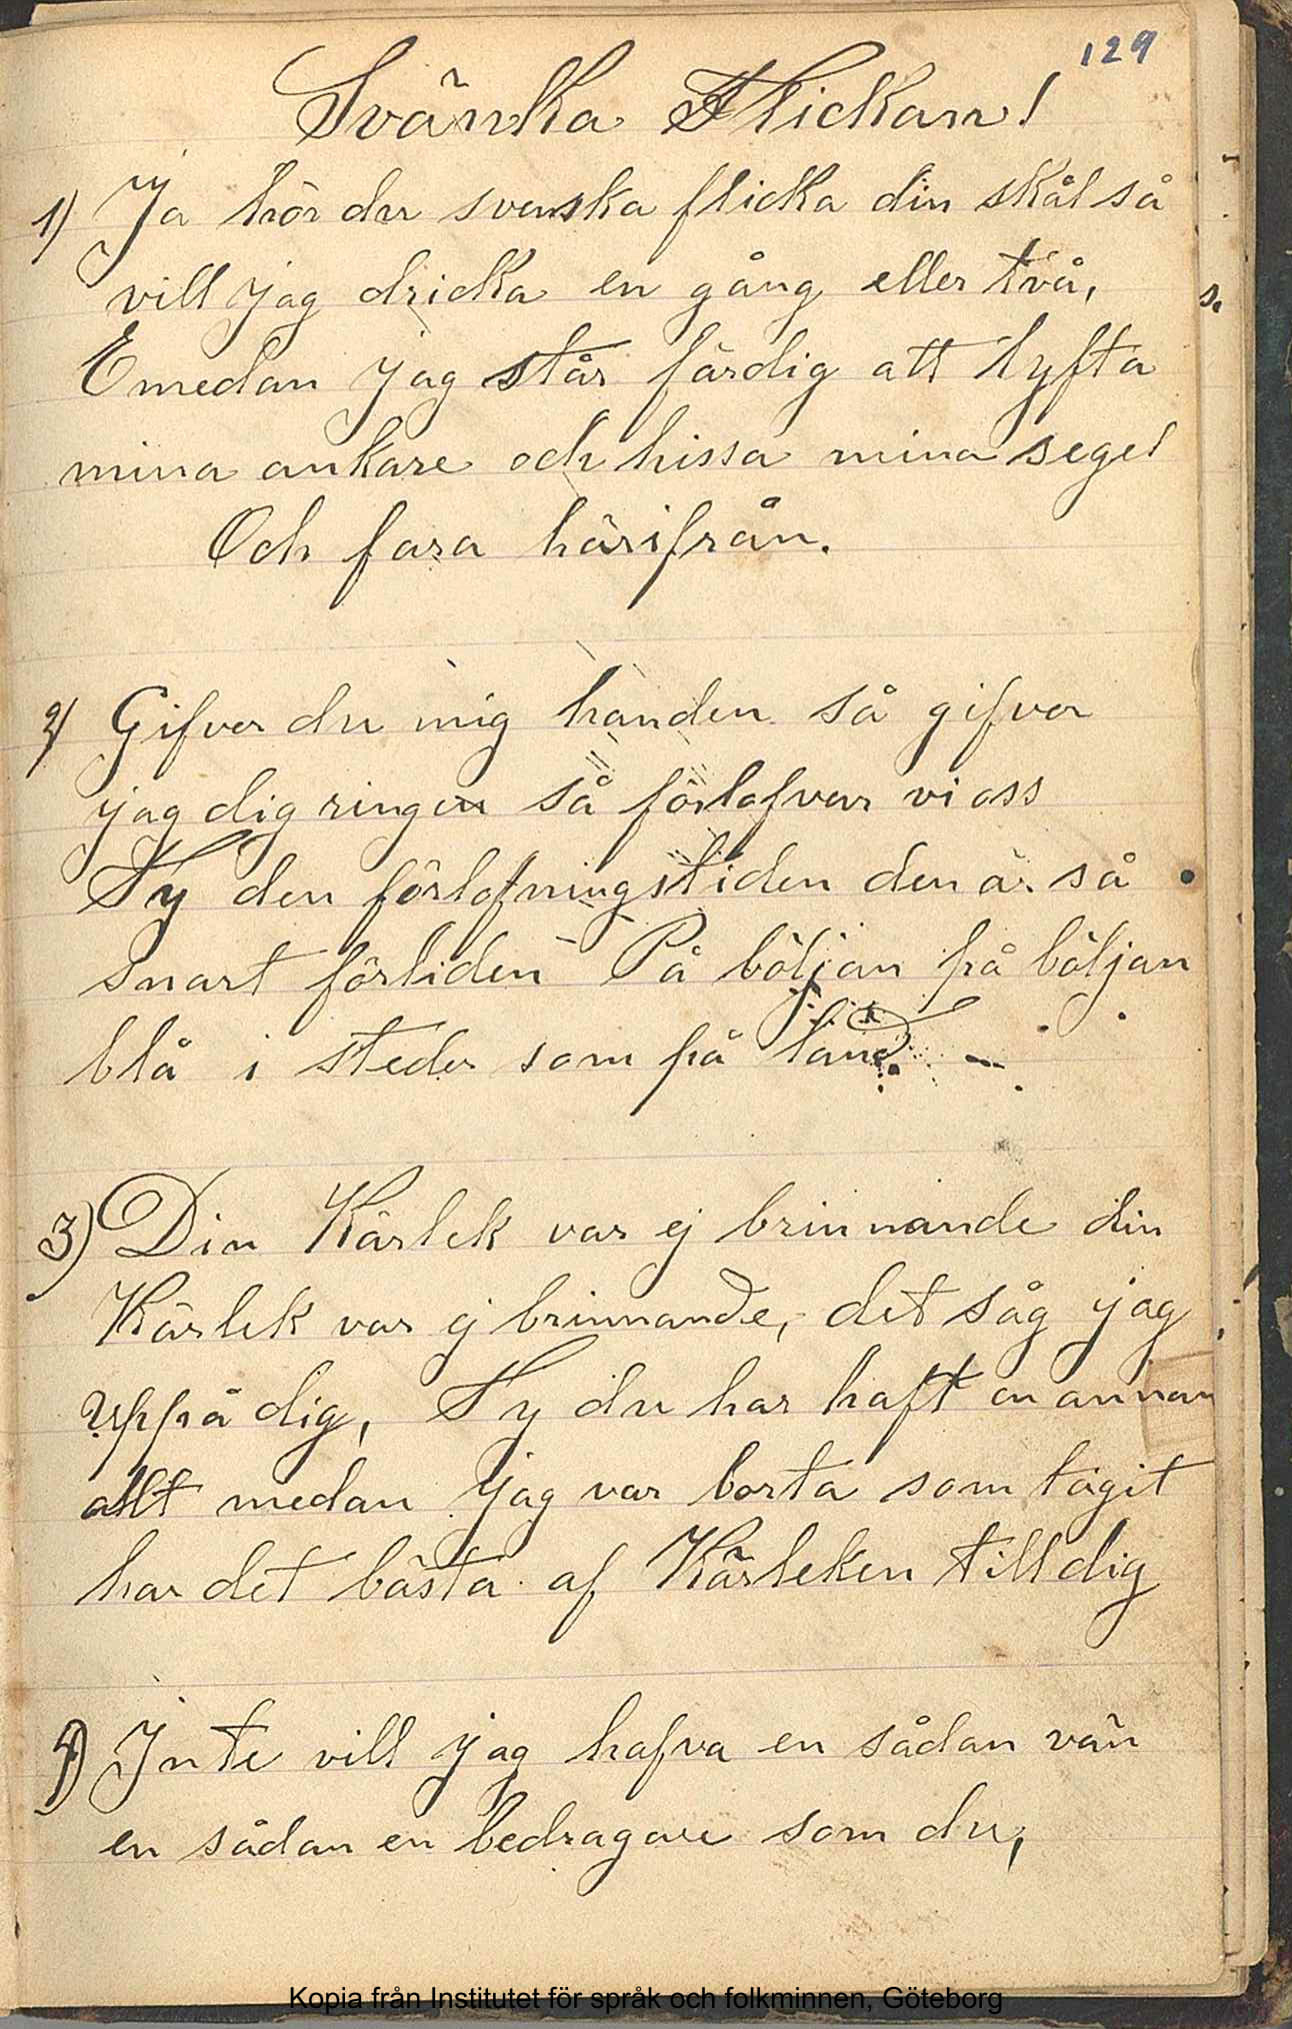 129
Svänka Flickan!
1) Ja hör du svenska flicka din skål så
vill jag dricka en gång eller två,
Emedan jag står färdig att lyfta
mina ankare och hissa mina segel
Och fara härifrån.
2) Gifver du mig handen så gifver
jag dig ringen så förlofvar vi oss
Ty den förlofningstiden den är så
snart förliden På böljan på böljan
blå i steder som på land. –
3) Din Kärlek var ej brinnande din
Kärlek var ej brinnande, det såg jag
uppå dig, Ty du har haft en annan
allt medan jag var borta som tagit
har det bästa af Kärleken till dig
4) Inte vill jag hafva en sådan vän
en sådan en bedragare som du,
Kopia från Institutet för språk och folkminnen, Göteborg